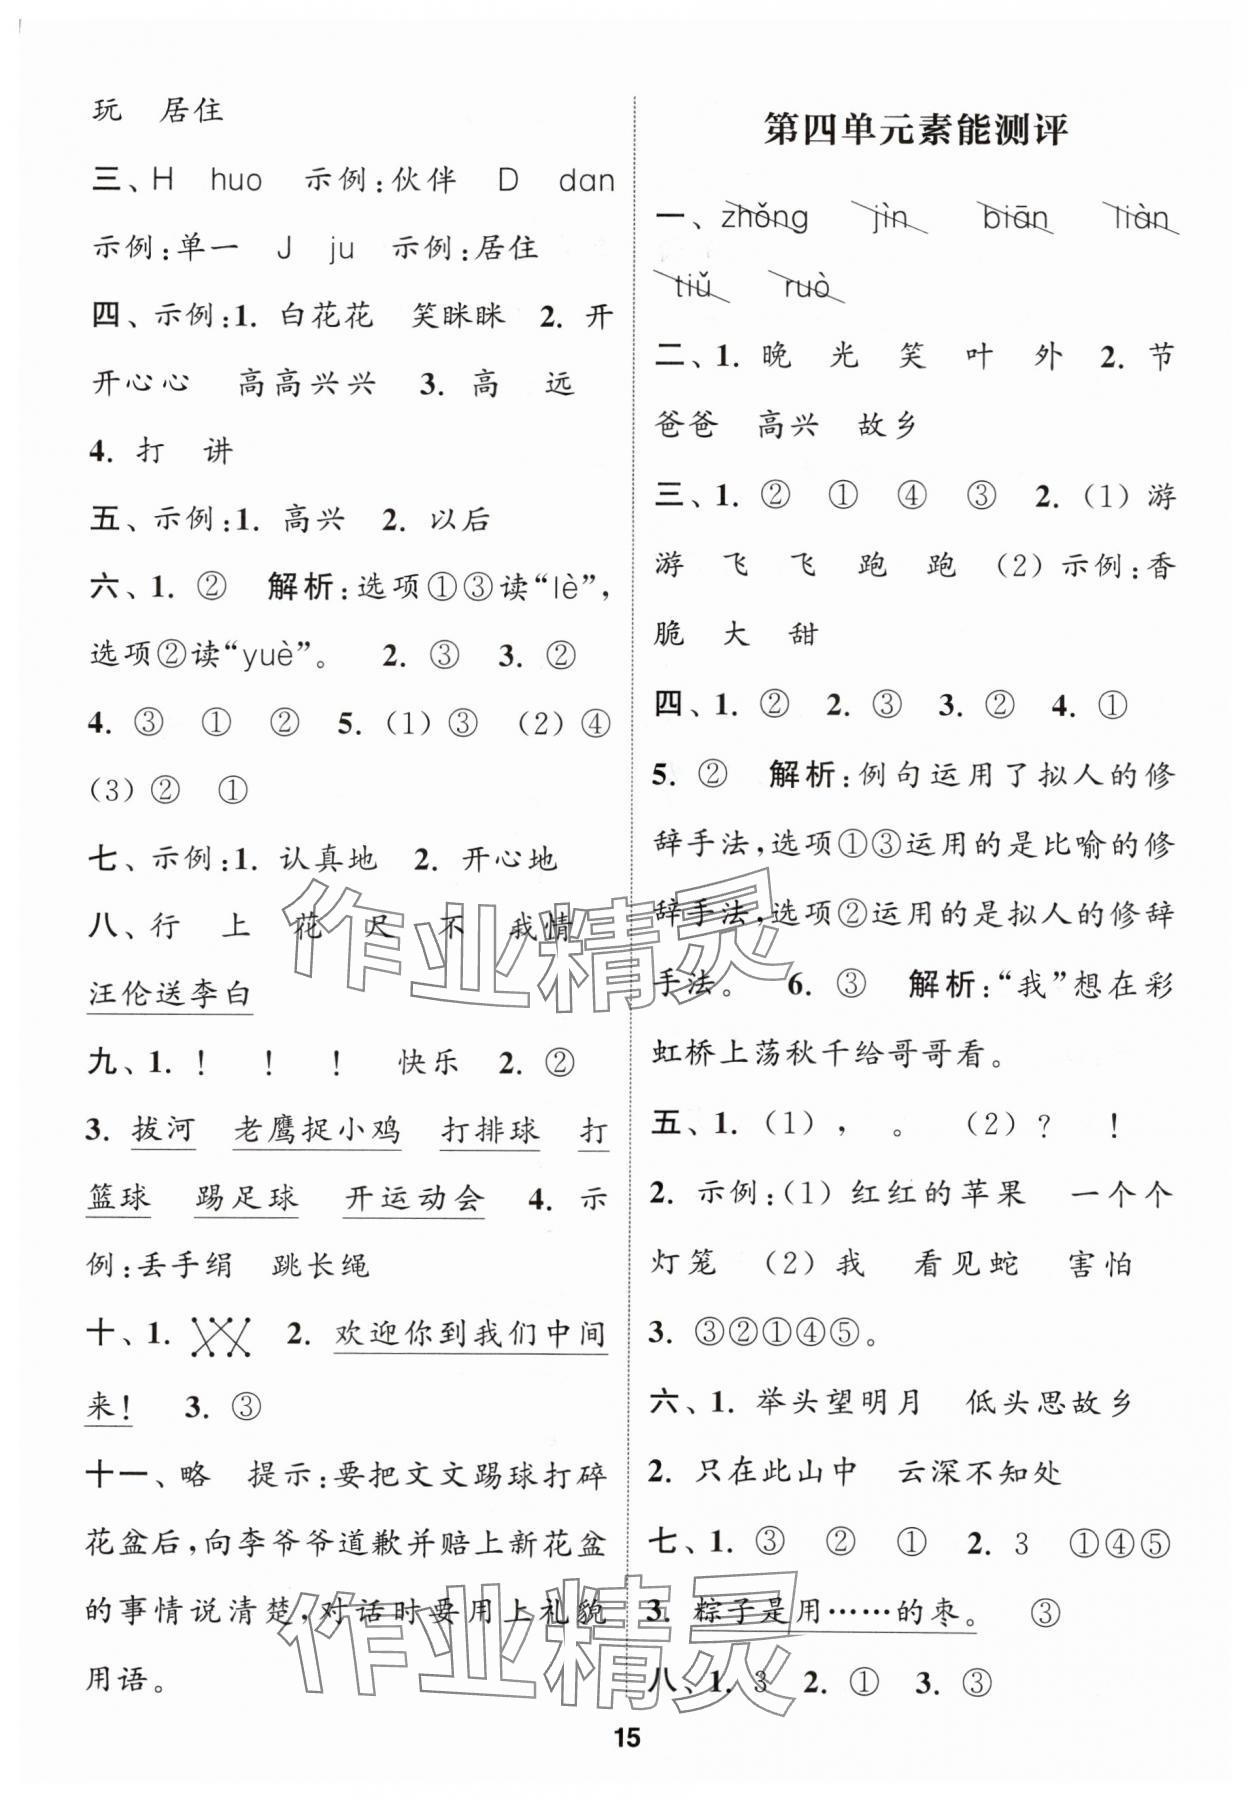 玩 居住
三、H huo 示例:伙伴 D dan
示例:单一 J ju 示例:居住
四、示例:1. 白花花 笑眯眯 2. 开
开心心 高高兴兴 3. 高 远
4. 打 讲
五、示例:1. 高兴 2. 以后
六、1. ② 解析:选项①③读“lè”,
选项②读“yuè”。 2. ③ 3. ②
4. ③ ① ② 5.(1)③ (2)④
(3)② ①
七、示例:1. 认真地 2. 开心地
八、行 上 花 尺 不 我情
汪伦送李白
九、1. ! ! ! 快乐 2. ②
3. 拔河 老鹰捉小鸡 打排球 打
篮球 踢足球 开运动会 4. 示
例:丢手绢 跳长绳
十、1. 2. 欢迎你到我们中间
来! 3. ③
十一、略 提示:要把文文踢球打碎
花盆后,向李爷爷道歉并赔上新花盆
的事情说清楚,对话时要用上礼貌
用语。
第四单元素能测评
一、zhǒng jìn biān liàn
tiǔ ruò
二、1. 晚 光 笑 叶 外 2. 节
爸爸 高兴 故乡
三、1. ② ① ④ ③ 2.(1)游
游 飞 飞 跑 跑 (2)示例:香
脆 大 甜
四、1. ② 2. ③ 3. ② 4. ①
5. ② 解析:例句运用了拟人的修
辞手法,选项①③运用的是比喻的修
辞手法,选项②运用的是拟人的修辞
手法。 6. ③ 解析:“我”想在彩
虹桥上荡秋千给哥哥看。
五、1.(1), 。 (2)? !
2. 示例:(1)红红的苹果 一个个
灯笼 (2)我 看见蛇 害怕
3. ③②①④⑤。
六、1. 举头望明月 低头思故乡
2. 只在此山中 云深不知处
七、1. ③ ② ① 2. 3 ①④⑤
3. 粽子是用……的枣。 ③
八、1. 3 2. ① 3. ③
15
作业精灵
作业精灵